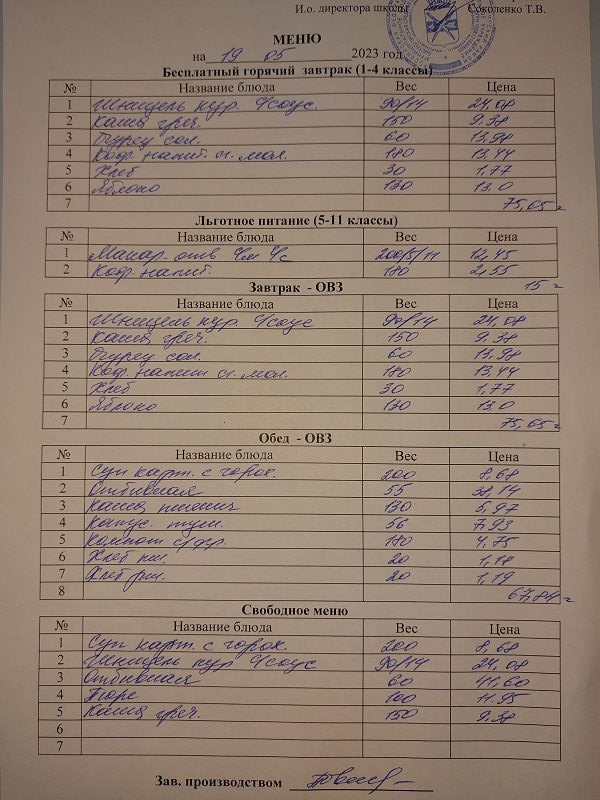 И.о. директора школы Соколенко Т.В.
МЕНЮ
на 19 05 2023 год
Бесплатный горячий завтрак (1-4 классы)
№ Название блюда Вес Цена
1 Шницель кур. ч/соус. 90/14 24,08
2 Каша греч. 150 9.38
3 Огурец сол. 60 13,98
4 Коф. напит. сг. мол. 180 13,44
5 Хлеб 30 1,77
6 Яблоко 130 13,0
7 75,65
Льготное питание (5-11 классы)
№ Название блюда Вес Цена
1 Макар. отв 200/5/11 12,45
2 Коф. напит. 180 2,55
15
Завтрак - ОВЗ
№ Название блюда Вес Цена
1 Шницель кур ч/соус 90/14 24,08
2 Каша греч. 150 9.38
3 Огурец сол. 60 13,98
4 Коф. напит сг. мол. 180 13,44
5 Хлеб 30 1,77
6 Яблоко 130 13,0
7 75,65
Обед - ОВЗ
№ Название блюда Вес Цена
1 Суп карт. с горох. 200 8,68
2 Отбивная 55 38,14
3 Каша пшенич 130 5,97
4 Капус. туш. 56 7,93
5 Компот с/фр. 180 4,75
6 Хлеб пш. 20 1,18
7 Хлеб рж. 20 1,19
8 67,84
Свободное меню
№ Название блюда Вес Цена
1 Суп карт. с горох. 200 8,68
2 Шницель кур ч/соус 90/14 24,08
3 Отбивная 60 41,60
4 Пюре 100 11.95
5 Каша греч. 150 9.38
6
7
Зав. производством